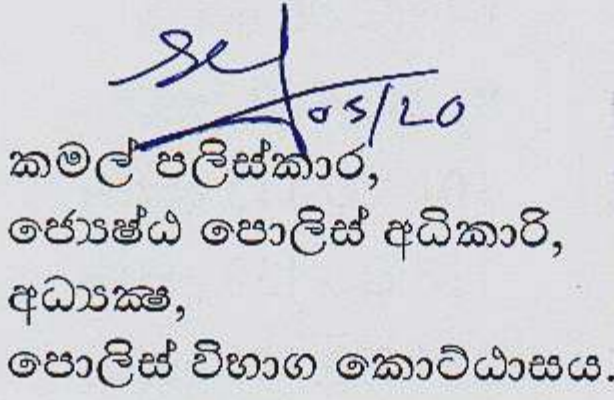 05/20
කමල් පලිස්කාර,
ජ්‍යෙෂ්ඨ පොලිස් අධිකාරි,
අධ්‍යක්ෂ,
පොලිස් විභාග කොට්ඨාසය.